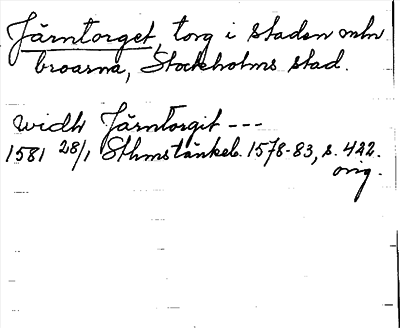 Järntorget, torg i staden mln
broarna, Stockholms stad.
widh Järntorgit ---
1581 28/1 Sthmstänkeb. 1578-83, s. 422.
orig.